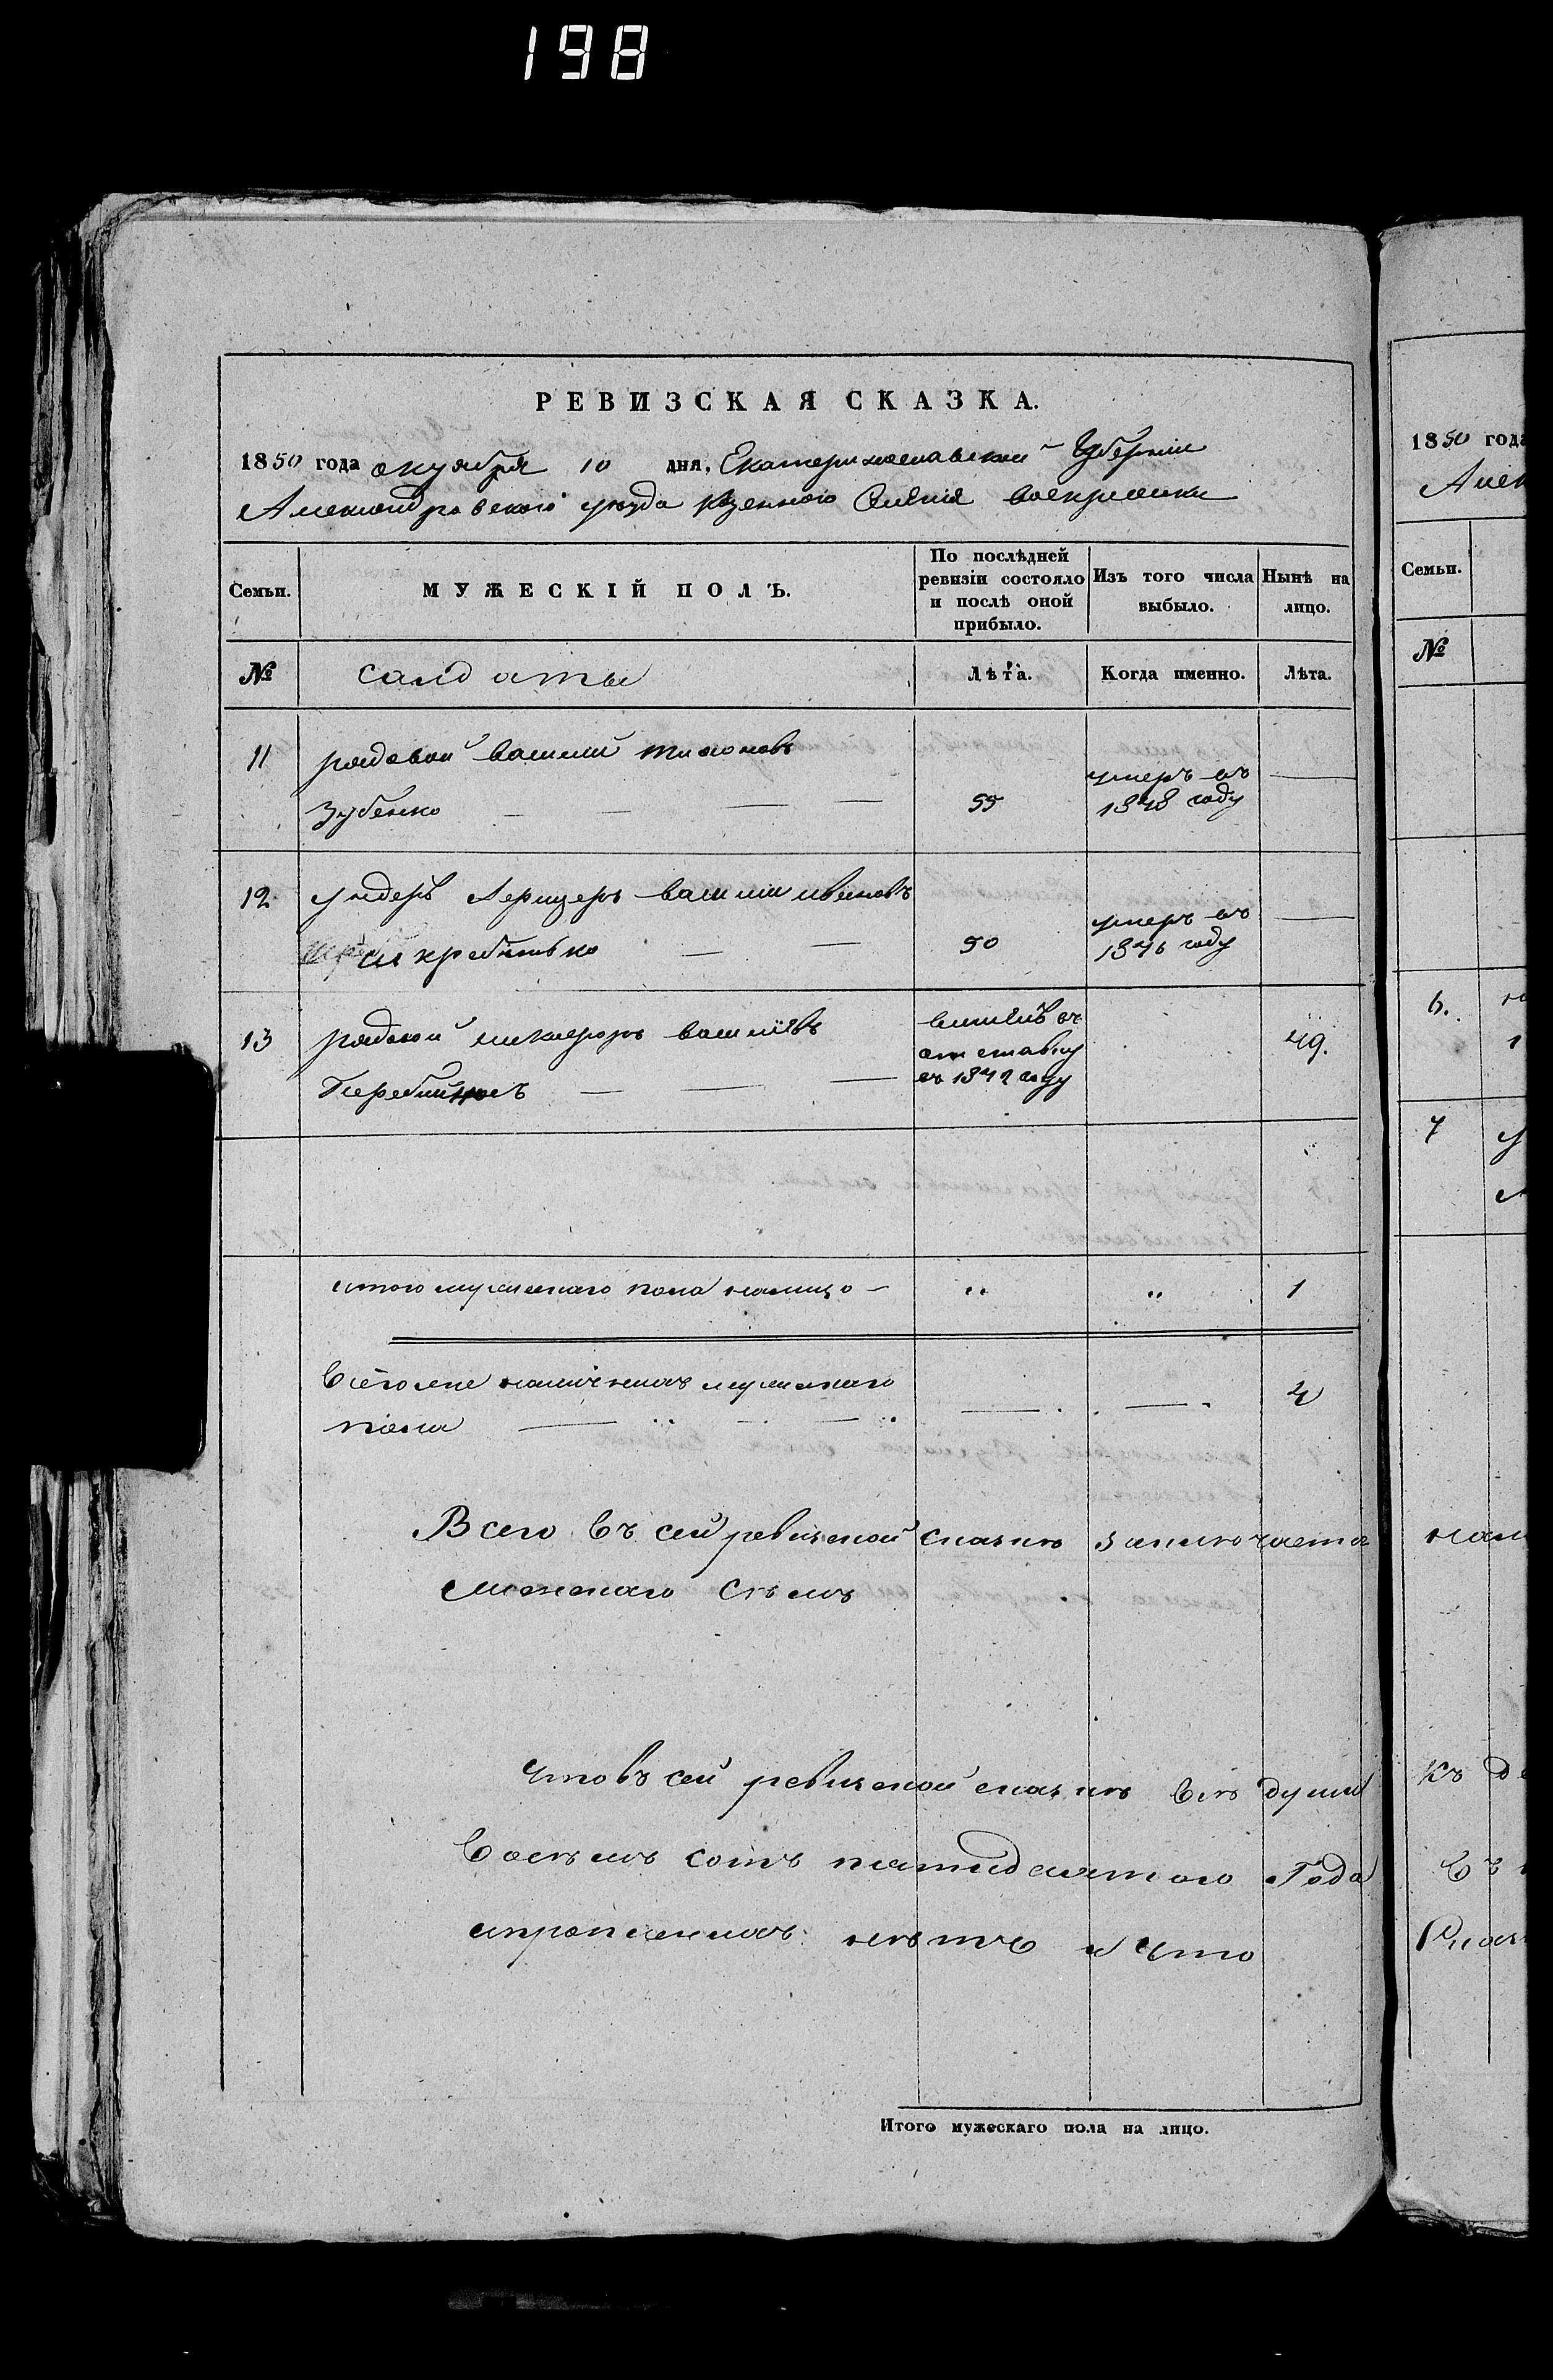 198
РЕВИЗСКАЯ СКАЗКА.
1850 года октября 10 дня, Екатеринославской Губерніи
Александровского уезда казенного Селенія воскрисенки
Семьи.
МУЖЕСКІЙ ПОЛЪ.
По послѣдней ревизіи состояло и послѣ оной прибыло.
Изъ того числа выбыло.
Нынѣ на лицо.
№
салдаты
Лѣта.
Когда именно.
Лѣта.
11 радовой василий тихоновъ
Зубенко 55 умеръ въ 1848 году
12 ундеръ Аерицеръ василий ивановъ
50 умеръ въ 1846 году
13 радовой никифоръ василіевъ 49.
отставку въ 1842 году
итого мужескаго пола налицо 1
Всего наличныхъ мужескаго
пола
Всего въ сей ревизской сказке заключаетса
женскаго
что въ сей ревизской сказке все души
восемь сотъ патидесятого Года
нетъ и что
Итого мужескаго пола на лицо.
1850 года
Алек
Семьи.
№
6.
7
нали
къ де
въ